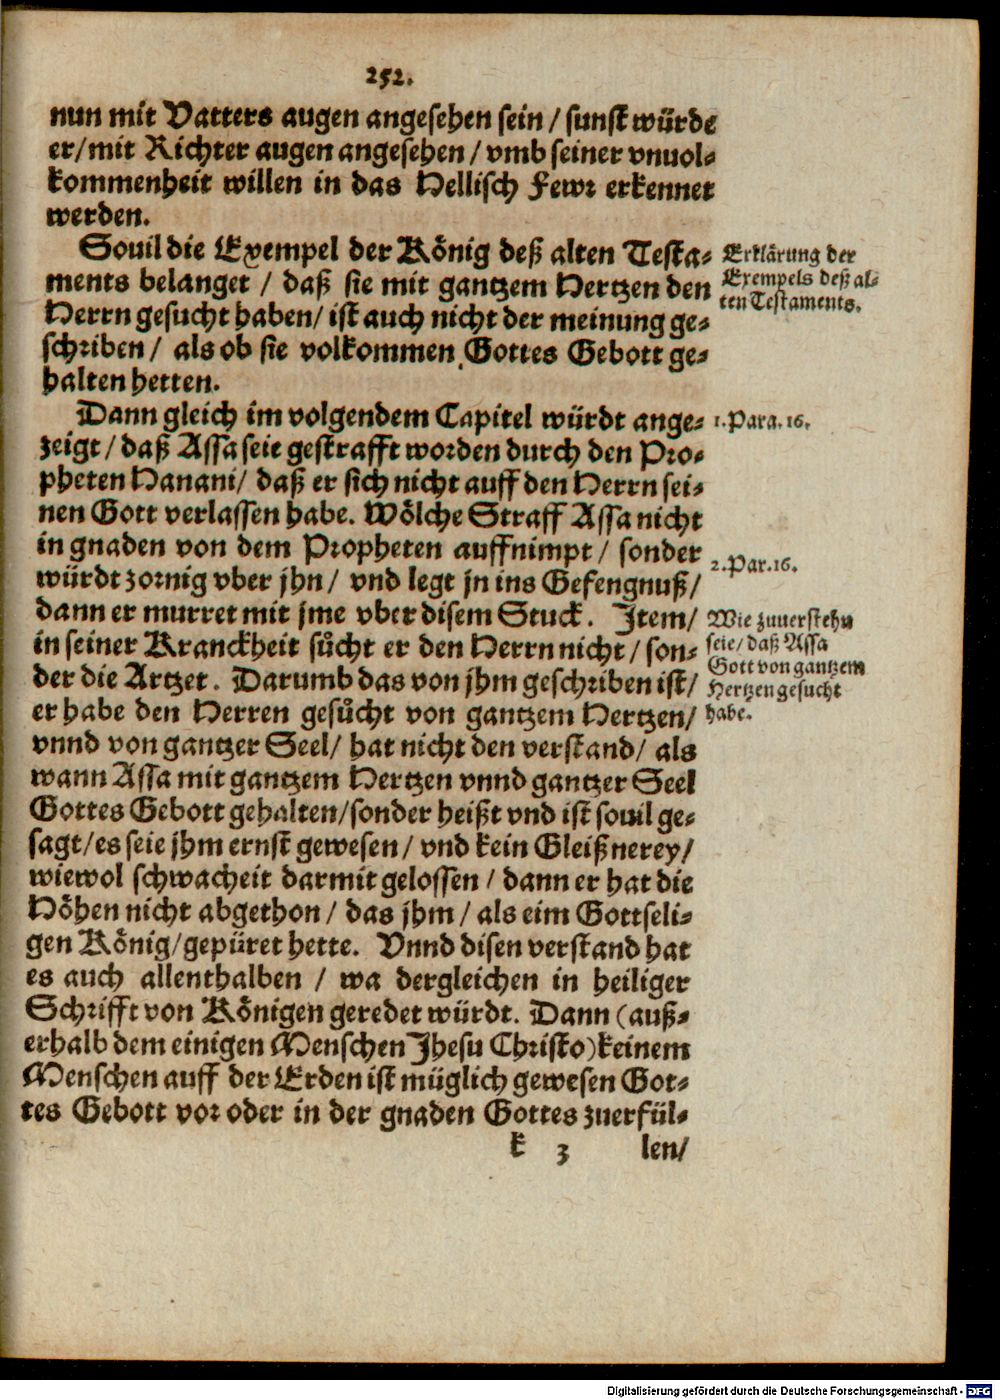 252.
nun mit Vatters augen angesehen sein / sunst würde
er/mit Richter augen angesehen / vmb seiner vnuol-
kommenheit willen in das Hellisch Fewr erkennet
werden.
Souil die Exempel der König deß alten Testa-
ments belanget / daß sie mit gantzem Hertzen den
Herrn gesucht haben/ ist auch nicht der meinung ge-
schriben / als ob sie volkommen Gottes Gebott ge-
halten hetten.
Erklärung der
Exempels deß al-
ten Testaments.
Dann gleich im volgendem Capitel würdt ange-
zeigt / daß Assa seie gestrafft worden durch den Pro-
pheten Hanani/ daß er sich nicht auff den Herrn sei-
nen Gott verlassen habe. Wölche Straff Assa nicht
in gnaden von dem Propheten auffnimpt / sonder
würdt zornig vber jhn / vnd legt jn ins Gefengnuß/
dann er murret mit jme vber disem Stuck. Item/
in seiner Kranckheit sůcht er den Herrn nicht / son-
der die Artzet. Darumb das von jhm geschriben ist/
er habe den Herren gesůcht von gantzem Hertzen/
vnnd von gantzer Seel/ hat nicht den verstand/ als
wann Assa mit gantzem Hertzen vnnd gantzer Seel
Gottes Gebott gehalten/sonder heißt vnd ist souil ge-
sagt/es seie jhm ernst gewesen / vnd kein Gleißnerey/
wiewol schwacheit darmit gelossen / dann er hat die
Höhen nicht abgethon / das jhm / als eim Gottseli-
gen König/gepüret hette. Vnnd disen verstand hat
es auch allenthalben / wa dergleichen in heiliger
Schrifft von Königen geredet würdt. Dann (auß-
erhalb dem einigen Menschen Jhesu Christo) keinem
Menschen auff der Erden ist müglich gewesen Got-
tes Gebott vor oder in der gnaden Gottes zuerfül-
1. Para. 16.
2. Par. 16.
Wie zuuerstehn
seie / daß Assa
Gott von gantzem
Hertzen gesucht
habe.
k 3
len/
Digitalisierung gefördert durch die Deutsche Forschungsgemeinschaft - DFG